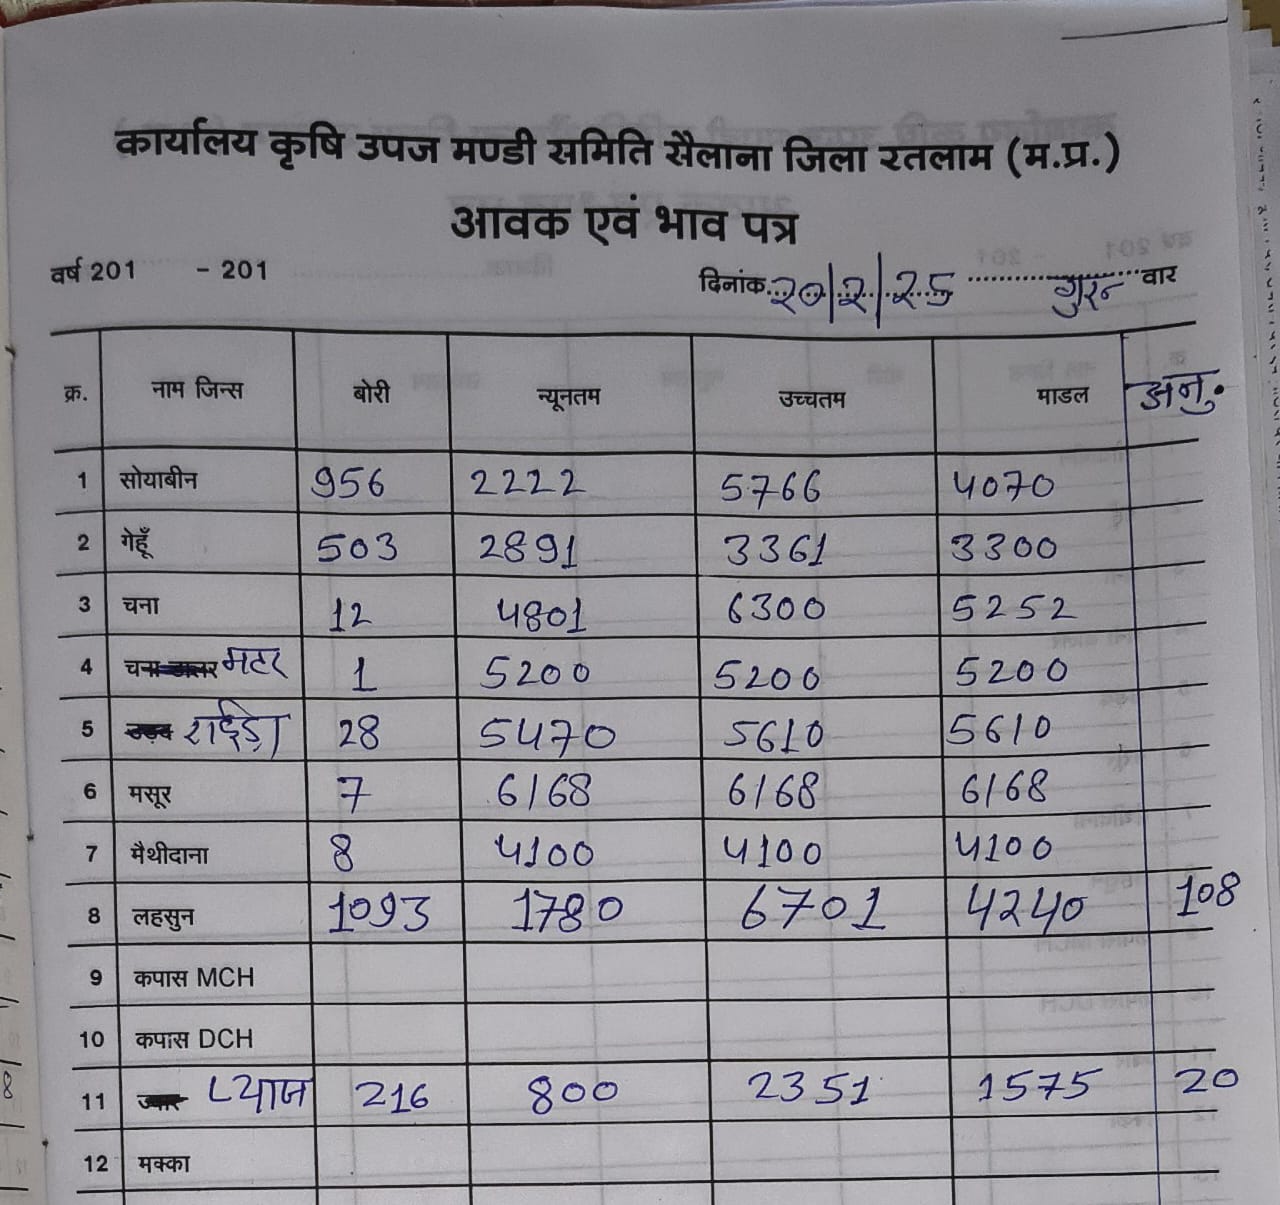 कार्यालय कृषि उपज मण्डी समिति सैलाना जिला रतलाम (म.प्र.)
आवक एवं भाव पत्र
वर्ष 201 - 201 दिनांक २०/२/२५ गुरू वार
क्र. नाम जिन्स बोरी न्यूनतम उच्चतम माडल अनु.
1 सोयाबीन 956 2222 5766 4070
2 गेहूँ 503 2891 3361 3300
3 चना 12 4801 6300 5252
4 चना डालर मटर 1 5200 5200 5200
5 उड़द राईड़ा 28 5470 5610 5610
6 मसूर 7 6168 6168 6168
7 मैथीदाना 8 4100 4100 4100
8 लहसुन 1093 1780 6701 4240 108
9 कपास MCH
10 कपास DCH
11 ज्वार प्याज 216 800 2351 1575 20
12 मक्का